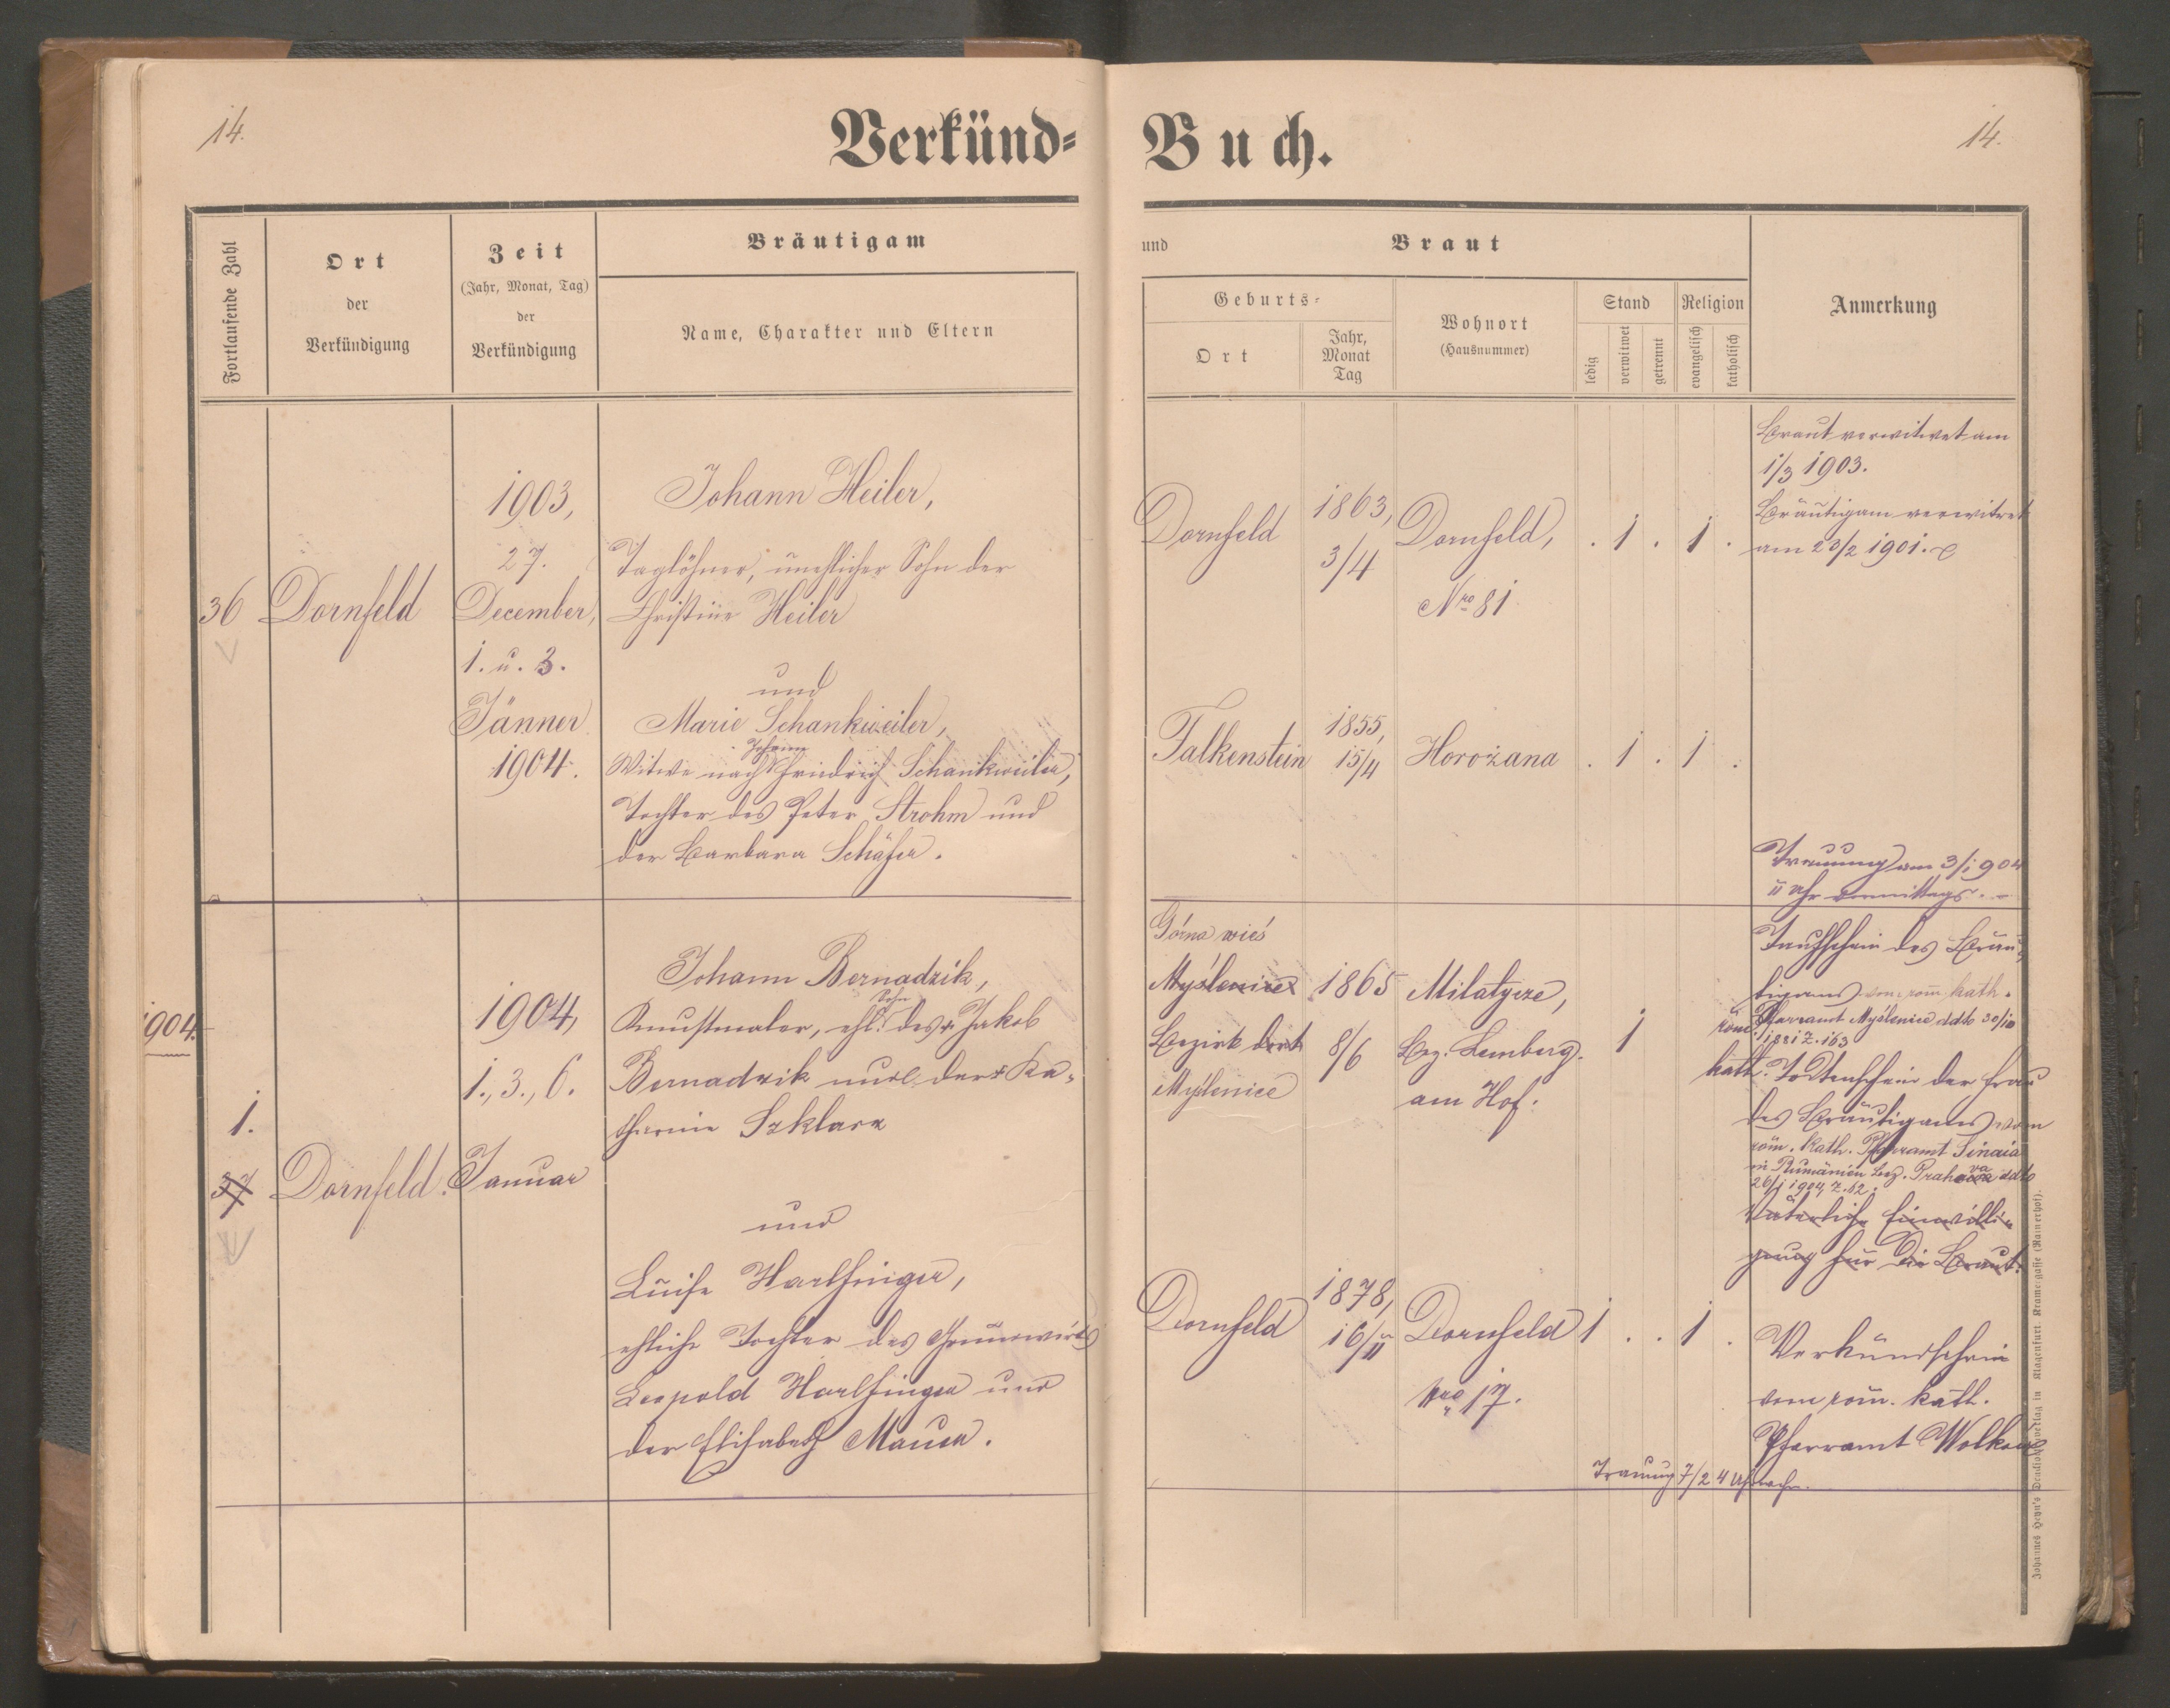 14.
Verkünd-
Buch.
14.
Fortlaufende Zahl
Ort
der
Verkündigung
Zeit
(Jahr, Monat, Tag)
der
Verkündigung
Bräutigam
Name, Charakter und Eltern
und
Braut
Geburts-
Ort
Jahr,
Monat
Tag
Wohnort
(Hausnummer)
Stand
ledig
verwitwet
getrennt
Religion
evangelisch
katholisch
Anmerkung
36
Dornfeld
1903,
27.
December,
1. u. 3.
Jänner
1904.
Johann Heiler,
Taglöhner, unehlicher Sohn der
Christine Heiler
und
Marie Schankweiler,
Johann
Witwe nach Friedrich Schankweiler,
Tochter des Peter Strohm und
der Barbara Schäfer.
Dornfeld
1863,
3/4
Dornfeld,
Nro 81
. 1 . 1 .
Falkenstein
1855,
15/4
Horożana
. 1 . 1 .
Braut verwitwet am
1/3 1903.
Bräutigam verwitwet
am 23/2 1901.
Trauung am 3/1 904
11 Uhr vormittags. –
1904.
1.
37
Dornfeld.
1904,
1., 3., 6.
Januar
Johann Bernadzik,
Sohn
Kunstmaler, ehl. des + Jakob
Bernadzik und der + Ka-
tharina Szklarz
und
Luise Harlfinger,
ehliche Tochter des Grundwirts
Leopold Harlfinger und
der Elisabeth Mauer.
Górna wieś
Myślenice
Bezirk dort
Myślenice
1865
8/6
Milatycze,
Bez. Lemberg.
am Hof.
1
röm.
kath.
Dornfeld
1878,
16/11
Dornfeld
Nro 17.
1 . . 1 .
Taufschein des Bräu-
tigams vom röm. kath.
Pfarramt Myślenice ddto 30/10
1881 Z. 163
Todtenschein der Frau
des Bräutigams vom
röm. kath. Pfarramt Sinaia
in Rumänien Bez. Prahova ddto
26/1 1904, Z. 12.
Väterliche Einwilli-
gung für die Braut.
Verkündschein
vom röm. kath.
Pfarramt Wolków
Trauung 7/2 4 Uhr nachm.
Johannes Heyn's Verlag in Klagenfurt Kramergasse (Rainerhof).